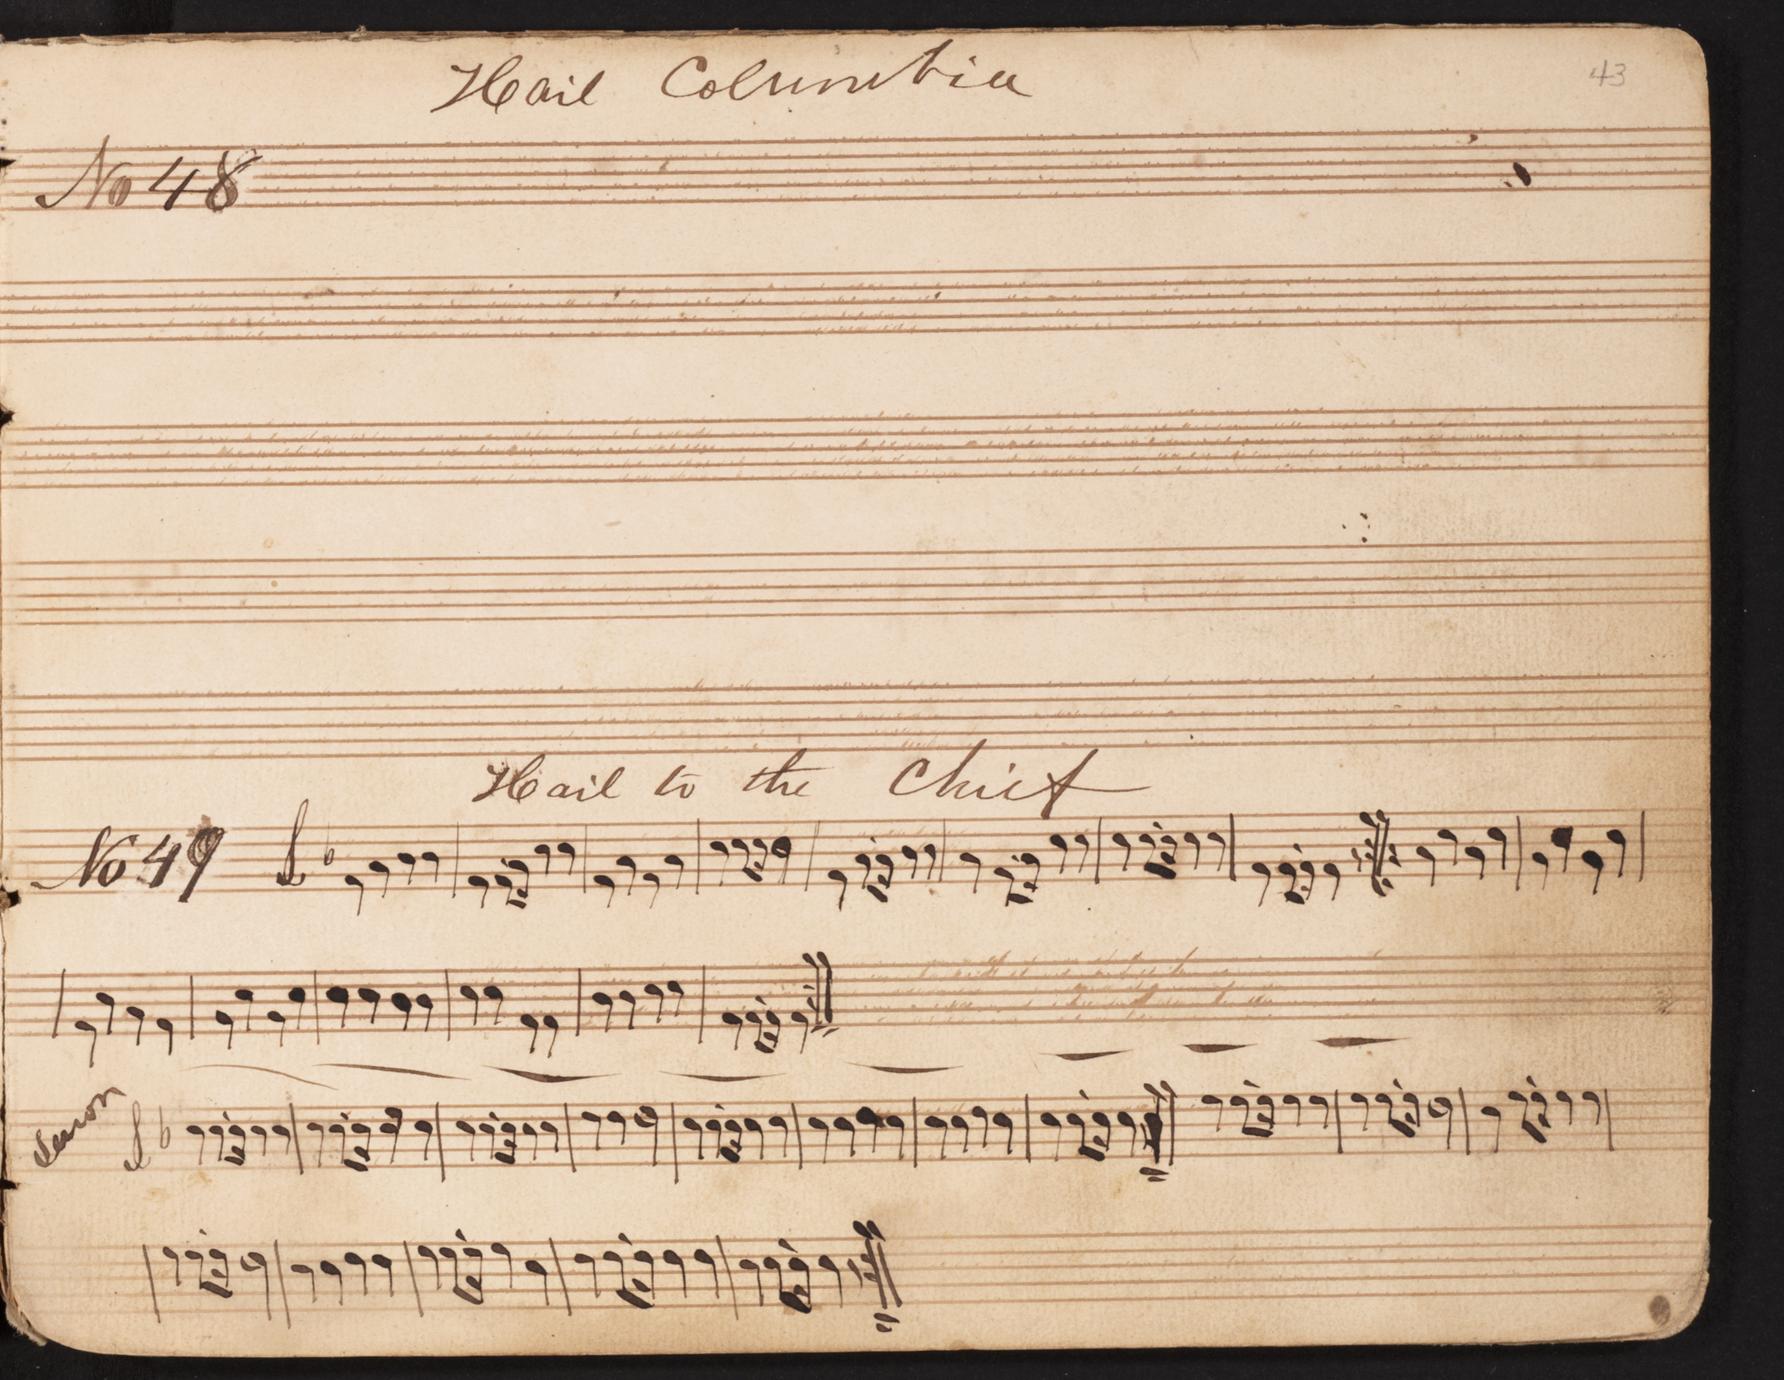 Hail Columbia
43
No 48
Hail to the Chief
No 49